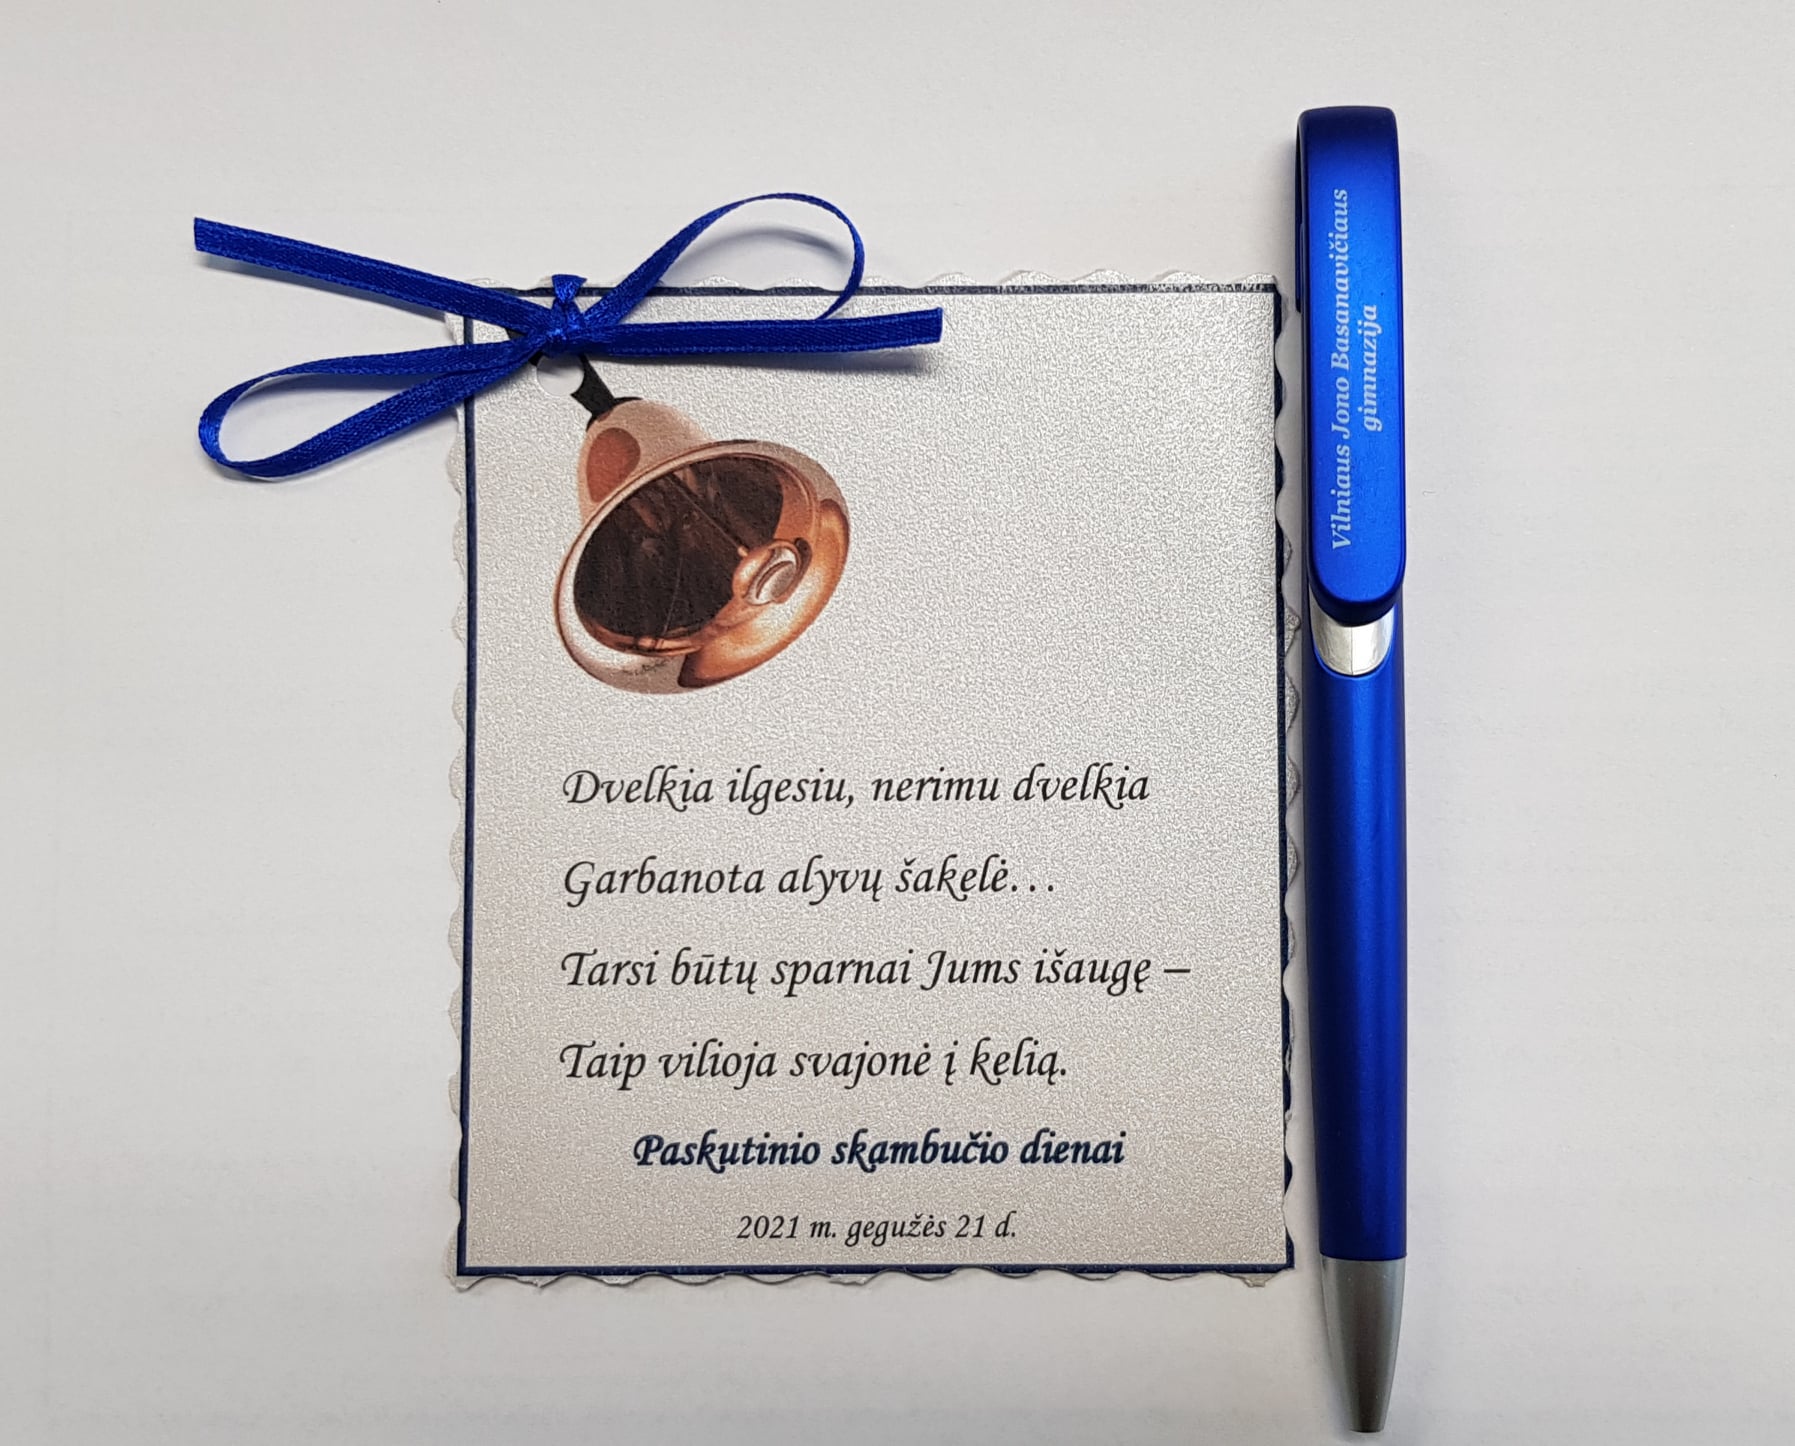 Dvelkia ilgesiu, nerimu dvelkia
Garbanota alyvų šakelė…
Tarsi būtų sparnai Jums išaugę –
Taip vilioja svajonė į kelią.
Paskutinio skambučio dienai
2021 m. gegužės 21 d.
Vilniaus Jono Basanavičiaus
gimnazija